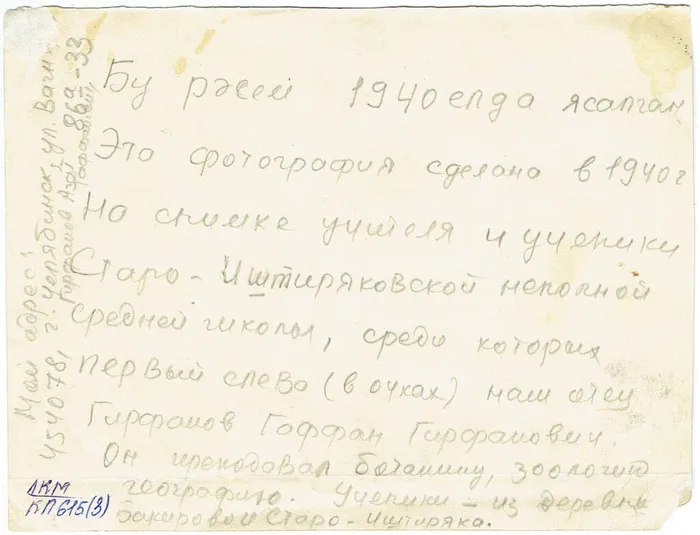 Бу рәсем 1940 елда ясалган
Эта фотография сделана в 1940 г
На снимке учителя и ученики
Старо-Иштиряковской неполной
средней школы, среди которых
первый слева (в очках) наш отец
Гирфанов Гаффан Гирфанович.
Он преподавал ботанику, зоологию
географию. Ученики – из деревни
Закировой Старо-Иштиряка.
Мой адрес:
454078, г. Челябинск, ул. Вагн
Гирфанов 86а-33
ЛКМ
КП615(3)